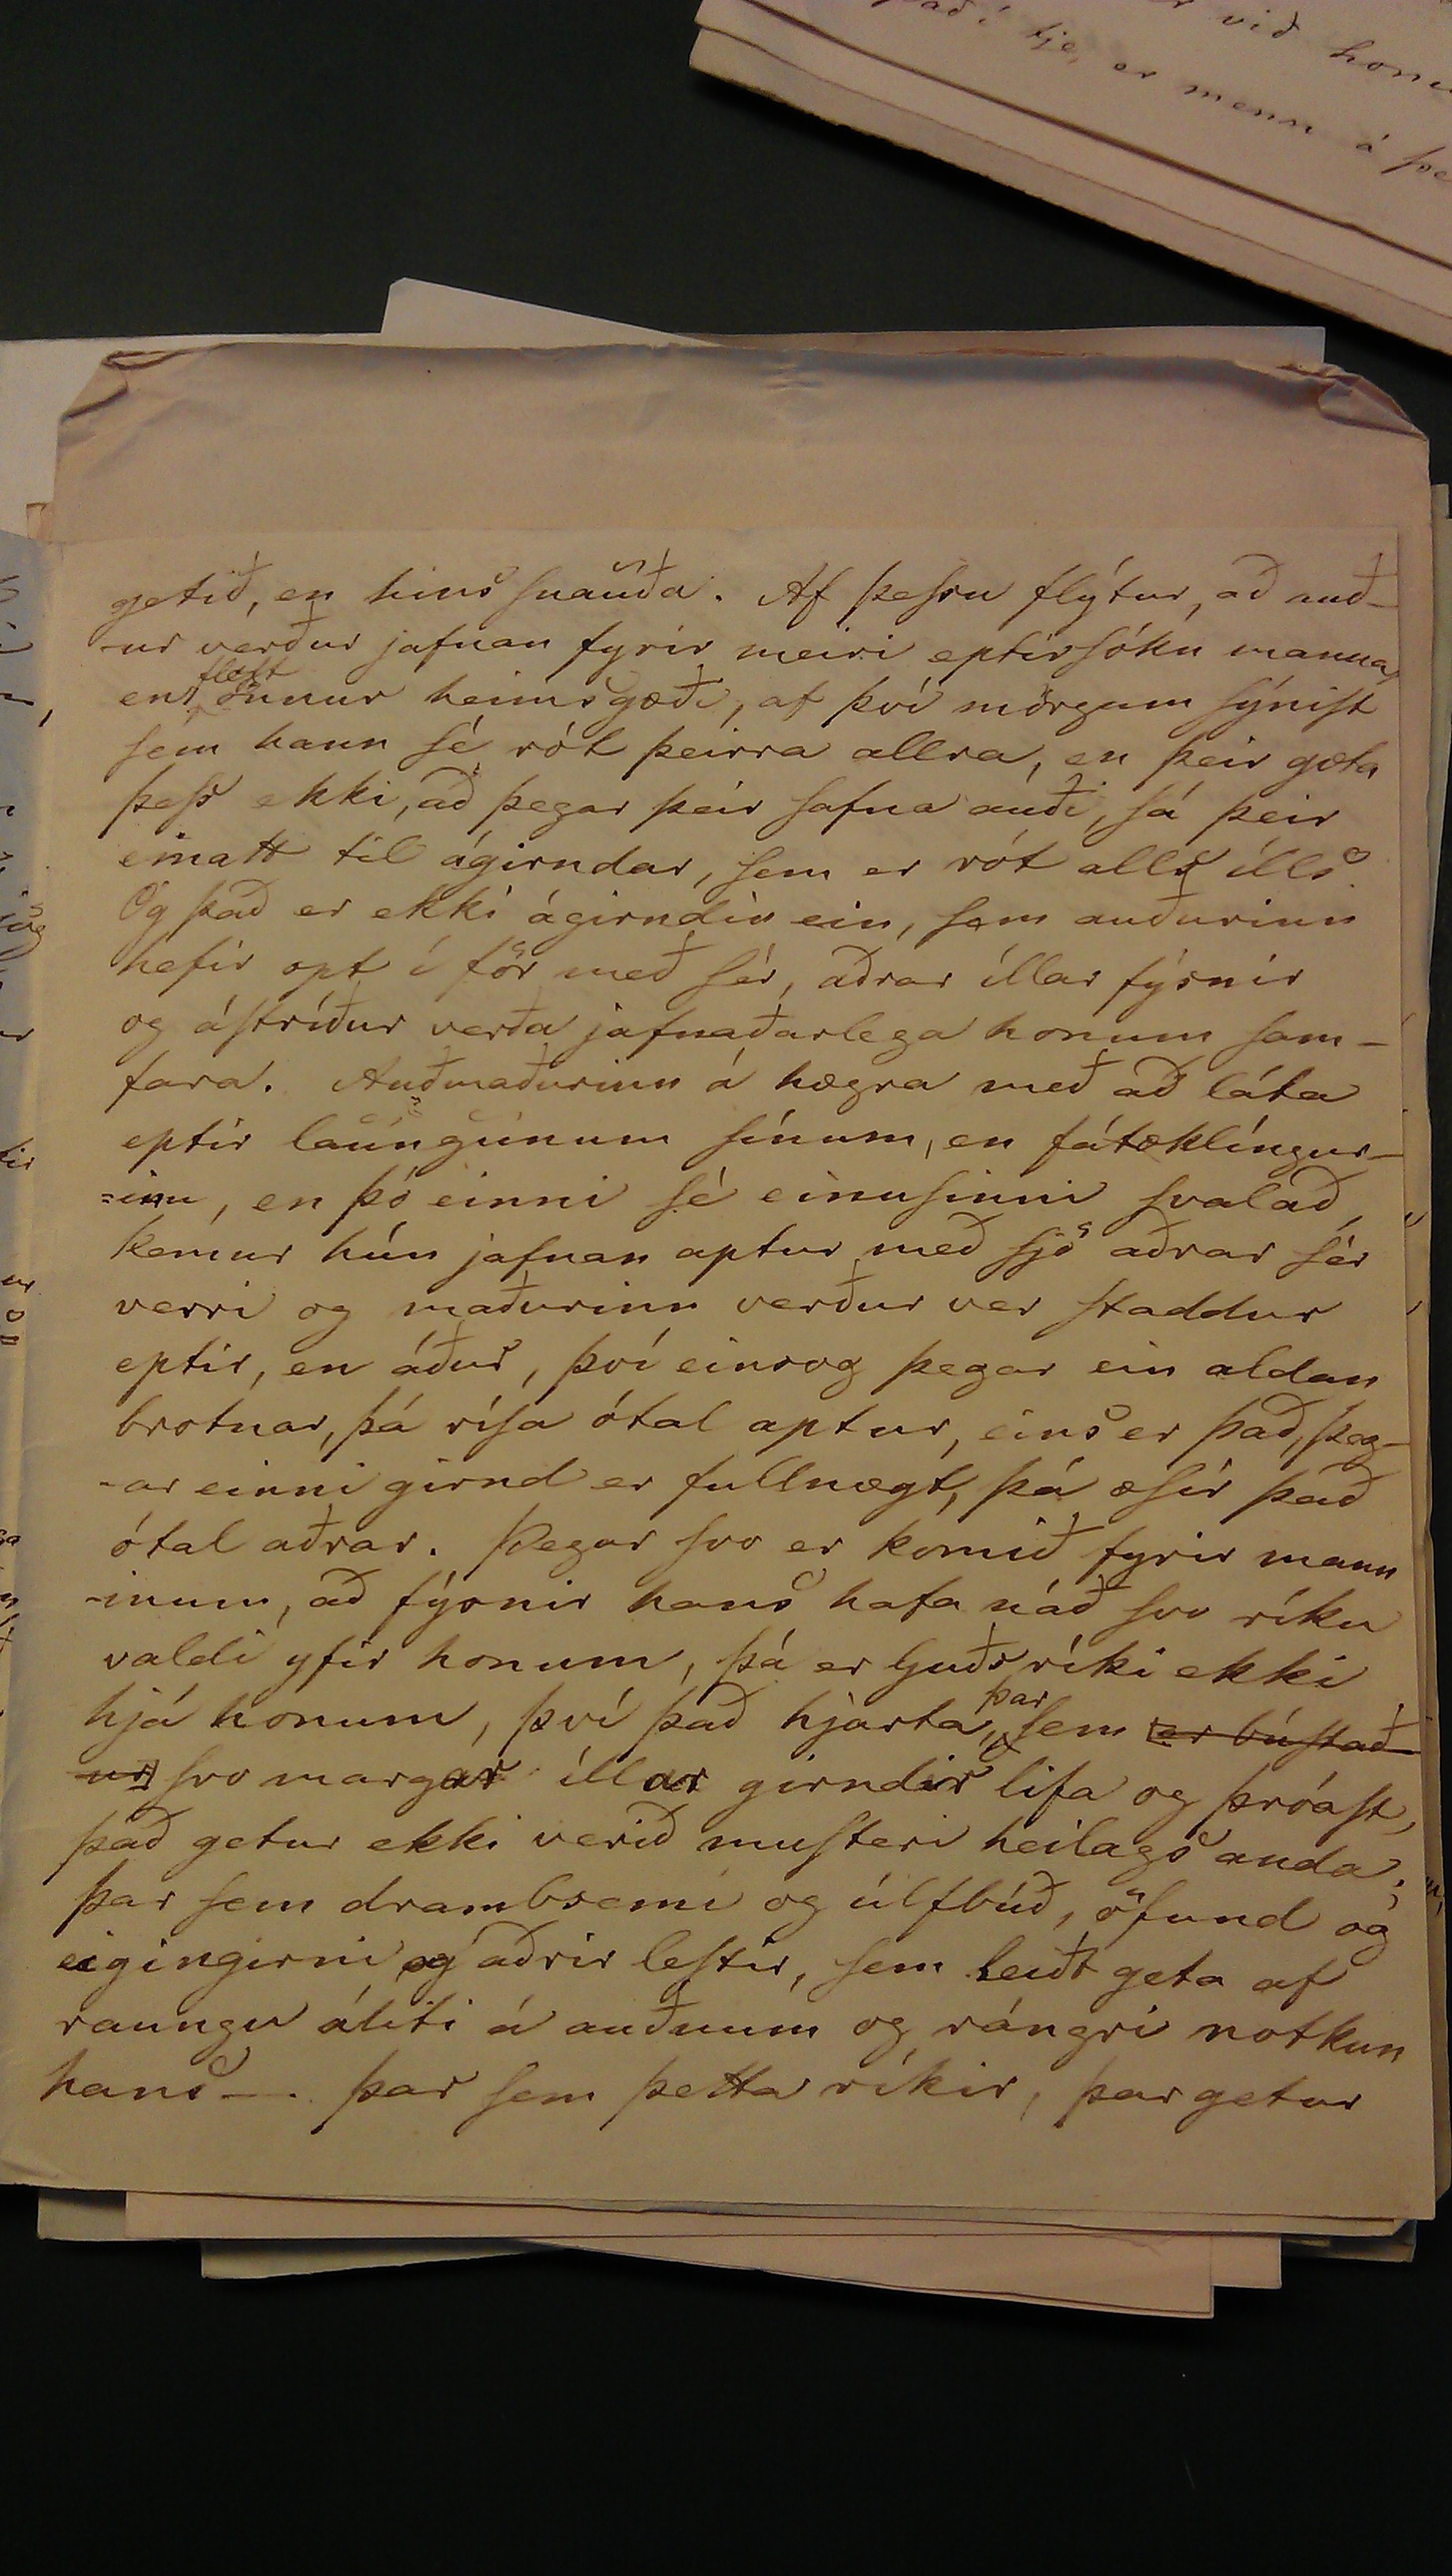 við honu
það í tje, er menn á þe
getið, en hins snauða. Af þessu flýtur, að auð-
-ur verður jafnan fyrir meiri eptirsókn manna,
en flest önnur heimsgæði, af því mörgum sýnist
sem hann sé rót þeirra allra, en þeir gæta
þess ekki, að þegar þeir safna auði, sá þeir
einatt til ágirndar, sem er rót alls ills.
Og það er ekki ágirndin ein, sem auðurinn
hefir opt í för með sér, aðrar íllar fýsnir
og ástríður verða jafnaðarlega honum sam-
fara. Auðmaðurinn á hægra með að láta
eptir laungunum sínum, en fátæklíngur-
=inn, en þó einni sé einusinni svalað,
kemur hún jafnan aptur með sjö aðrar sér
verri og maðurinn verður ver staddur
eptir, en áður, því einsog þegar ein aldan
brotnar, þá rísa ótal aptur, eins er það, þeg-
-ar einni girnd er fullnægt, þá æsir það
ótal aðrar. Þegar svo er komið fyrir mann
-inum, að fýsnir hans hafa náð svo ríku
valdi yfir honum, þá er Guðs ríki ekki
hjá honum, því það hjarta, þar sem er bústað
ur svo margar íllar girndir lifa og þróast,
það getur ekki verið musteri heilags anda;
þar sem drambsemi og úlfbúð, öfund og
eigingirni og aðrir lestir, sem leiðt geta af
raungu áliti á auðnum og rángri notkun
hans — . þar sem þetta ríkir, þar getur